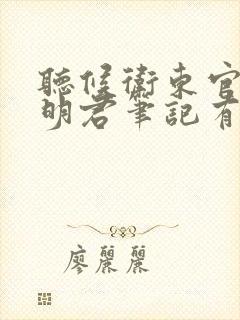 聽候衛東官
明君筆記有
廖麗麗